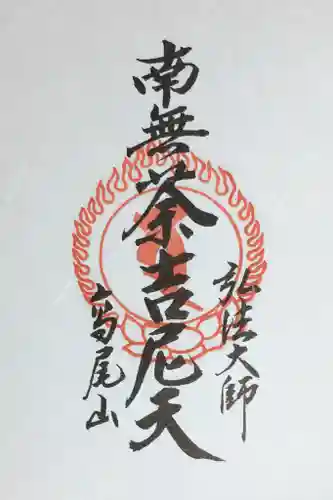 弘法大師
南無荼吉尼天
高尾山